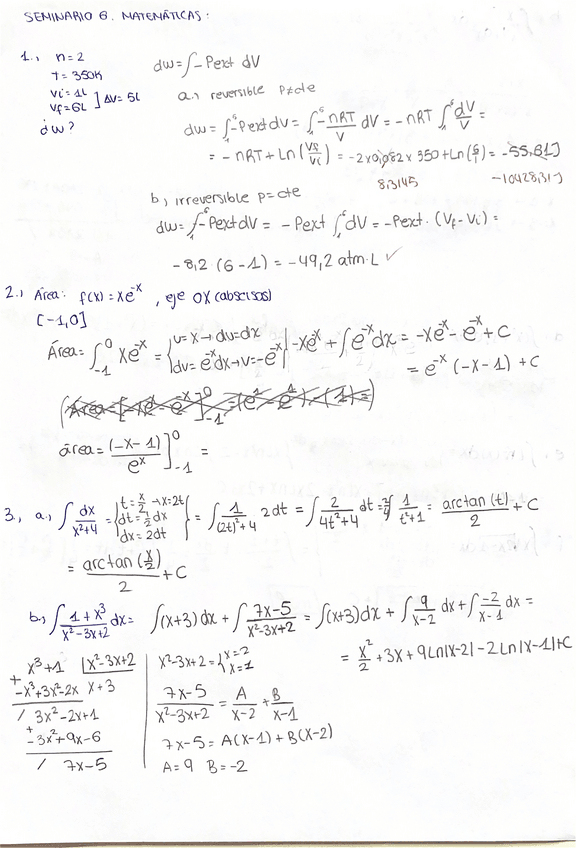 SEMINARIO 6. MATEMÁTICAS:
1., n=2
T= 350K
Vi= 1L
Vf=6L ] ΔV= 5L
¿dw?
dw=∫-Pext dV
a.) reversible P≠cte
dw=∫₁⁶-Pext dV=∫₁⁶-nRT/V dV = -nRT ∫₁⁶ dV/V =
= -nRT+Ln(Vf/Vi)=-2x0,082x350+Ln(6/1)= -55,61J
8,3145 -10428,31J
b) irreversible p=cte
dw=∫₁⁶-Pext dV= -Pext ∫₁⁶ dV= -Pext. (Vf-Vi)=
-8,2 (6-1)= -49,2 atm·L ✓
2., Área: f(x)= xe⁻ˣ , eje OX (abscisas)
[-1,0]
Área= ∫₋₁⁰ xe⁻ˣ = {u=x→du=dx dv=e⁻ˣdx→v=-e⁻ˣ| -xe⁻ˣ+∫e⁻ˣdx= -xe⁻ˣ-e⁻ˣ+C
= e⁻ˣ (-x-1) +C
área= (-x-1)/eˣ ]₋₁⁰ =
3., a., ∫dx/(x²+4) = {t=x/2→x=2t dt=1/2 dx dx=2dt} = ∫1/((2t)²+4) 2dt = ∫2/(4t²+4) dt = 2/4∫1/(t²+1) = arctan(t)/2 + C
= arctan(x/2)/2 + C
b., ∫(1+x³)/(x²-3x+2) dx= ∫(x+3)dx + ∫(7x-5)/(x²-3x+2) = ∫(x+3)dx + ∫9/(x-2) dx +∫-2/(x-1) dx =
= x²/2 +3x+9Ln|x-2|-2Ln|x-1|+C
x³+1 |x²-3x+2
+ -x³+3x²-2x x+3
/ 3x²-2x+1
+ -3x²+9x-6
/ 7x-5
x²-3x+2={x=2 x=1
(7x-5)/(x²-3x+2) = A/(x-2) + B/(x-1)
7x-5= A(x-1)+B(x-2)
A=9 B=-2